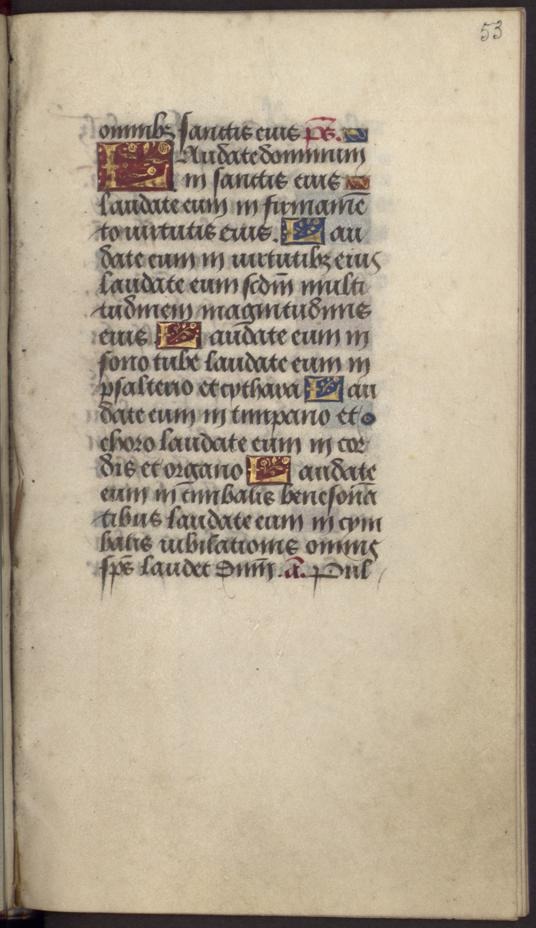 53
omnibꝫ sanctis eius p̄s.
Laudate dominum
in sanctis eius
laudate eum in firmamē
to uirtutis eius. Lau
date eum in uirtutibꝫ eius
laudate eum scdm̄ multi
tudinem magnitudinis
eius Laudate eum in
sono tube laudate eum in
psalterio et cythara Lau
date eum in timpano et
choro laudate eum in cor
dis et organo Laudate
eum in cimbalis benesona
tibus laudate eum in cym
balis iubilationis omnis
sps̄ laudet dnm̄. a. Pul